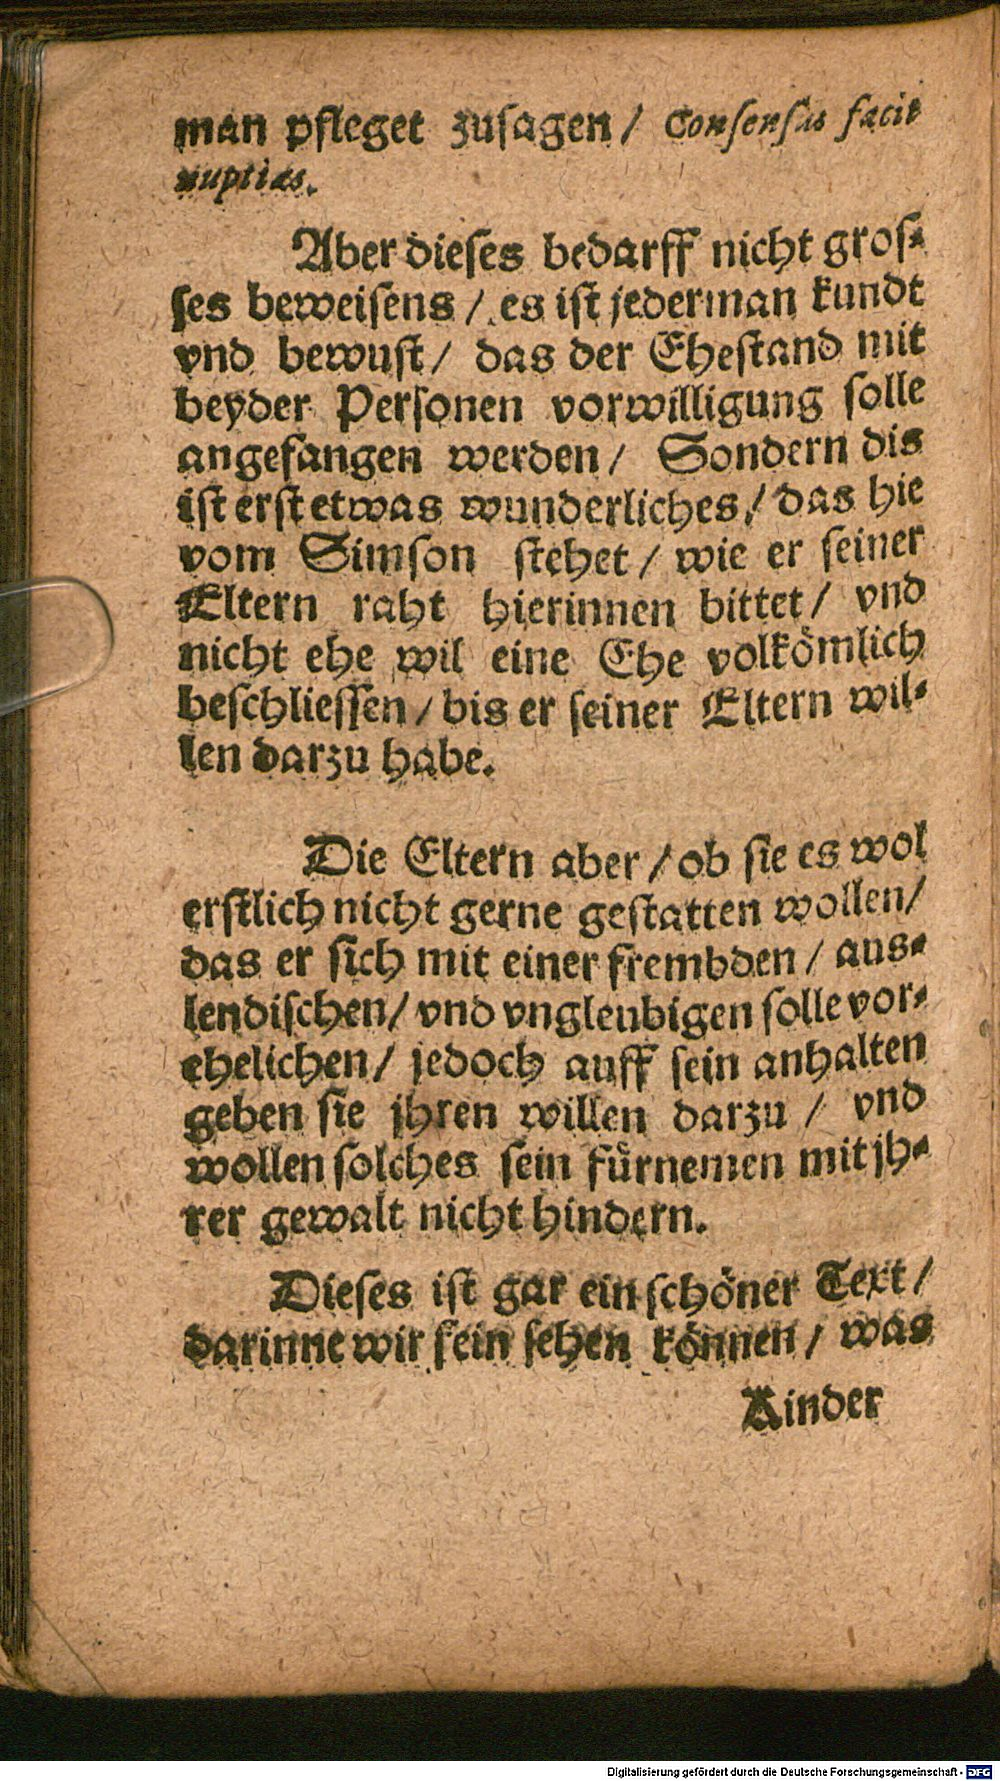 man pfleget zusagen / Consensus facit
nuptias.
Aber dieses bedarff nicht gros-
ses beweisens / es ist jederman kundt
vnd bewust / das der Ehestand mit
beyder Personen vorwilligung solle
angefangen werden / Sondern dis
ist erst etwas wunderliches / das hie
vom Simson stehet / wie er seiner
Eltern raht hierinnen bittet / vnd
nicht ehe wil eine Ehe volkömlich
beschliessen / bis er seiner Eltern wil-
len darzu habe.
Die Eltern aber / ob sie es wol
erstlich nicht gerne gestatten wollen /
das er sich mit einer frembden / aus-
lendischen / vnd vngleubigen solle vor-
ehelichen / jedoch auff sein anhalten
geben sie jhren willen darzu / vnd
wollen solches sein fürnemen mit jh-
rer gewalt nicht hindern.
Dieses ist gar ein schöner Text /
darinne wir fein sehen können / was
Kinder
Digitalisierung gefördert durch die Deutsche Forschungsgemeinschaft - DFG